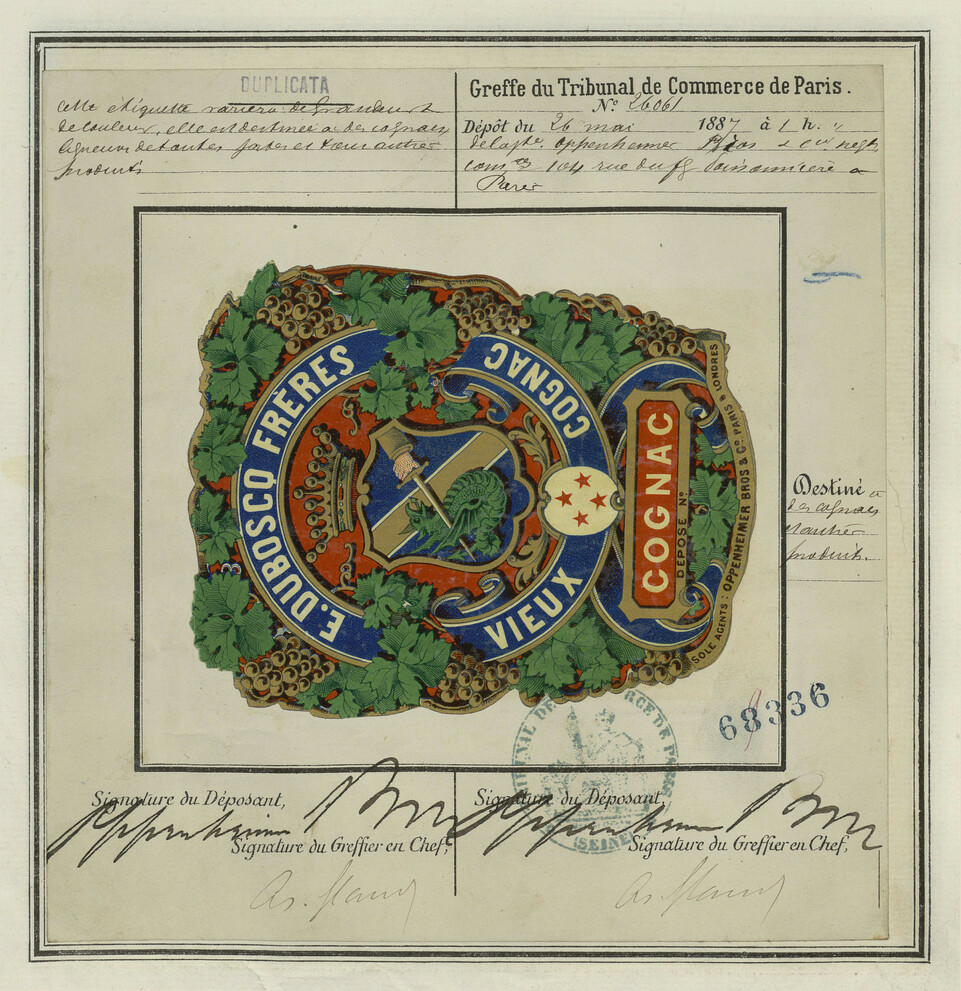 DUPLICATA
cette étiquette variera de grandeur &
de couleur, elle est destinée à des cognacs
liqueurs de toutes sortes et tous autres
produits
Greffe du Tribunal de Commerce de Paris.
N° 26061
Dépôt du 26 mai 1887 à 1 h.
de la Sté Oppenheimer &
104 rue du fg Poissonnière à
Paris
E. DUBOSCQ FRÈRES
COGNAC
VIEUX
COGNAC
DEPOSÉ N°
SOLE AGENTS: OPPENHEIMER BROS & C° PARIS & LONDRES
3
Destiné à
des cognacs
et autres
produits.
68336
TRIBUNAL DE COMMERCE DE PARIS
SEINE
Signature du Déposant,
Signature du Greffier en Chef,
Signature du Déposant,
Signature du Greffier en Chef,